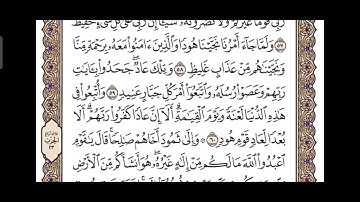 رَبِّى قَوْمًا غَيْرَكُمْ وَلَا تَضُرُّونَهُۥ شَيْـًٔا إِنَّ رَبِّى عَلَىٰ كُلِّ شَىْءٍ حَفِيظٌ
٥٧ وَلَمَّا جَآءَ أَمْرُنَا نَجَّيْنَا هُودًا وَٱلَّذِينَ ءَامَنُوا۟ مَعَهُۥ بِرَحْمَةٍ مِّنَّا
وَنَجَّيْنَٰهُم مِّنْ عَذَابٍ غَلِيظٍ ٥٨ وَتِلْكَ عَادٌ جَحَدُوا۟ بِـَٔايَٰتِ
رَبِّهِمْ وَعَصَوْا۟ رُسُلَهُۥ وَٱتَّبَعُوٓا۟ أَمْرَ كُلِّ جَبَّارٍ عَنِيدٍ ٥٩ وَأُتْبِعُوا۟ فِى
هَٰذِهِ ٱلدُّنْيَا لَعْنَةً وَيَوْمَ ٱلْقِيَٰمَةِ أَلَآ إِنَّ عَادًا كَفَرُوا۟ رَبَّهُمْ أَلَا
بُعْدًا لِّعَادٍ قَوْمِ هُودٍ ٦٠ وَإِلَىٰ ثَمُودَ أَخَاهُمْ صَٰلِحًا قَالَ يَٰقَوْمِ
ٱعْبُدُوا۟ ٱللَّهَ مَا لَكُم مِّنْ إِلَٰهٍ غَيْرُهُۥ هُوَ أَنشَأَكُم مِّنَ ٱلْأَرْضِ
الحزب
٢٣